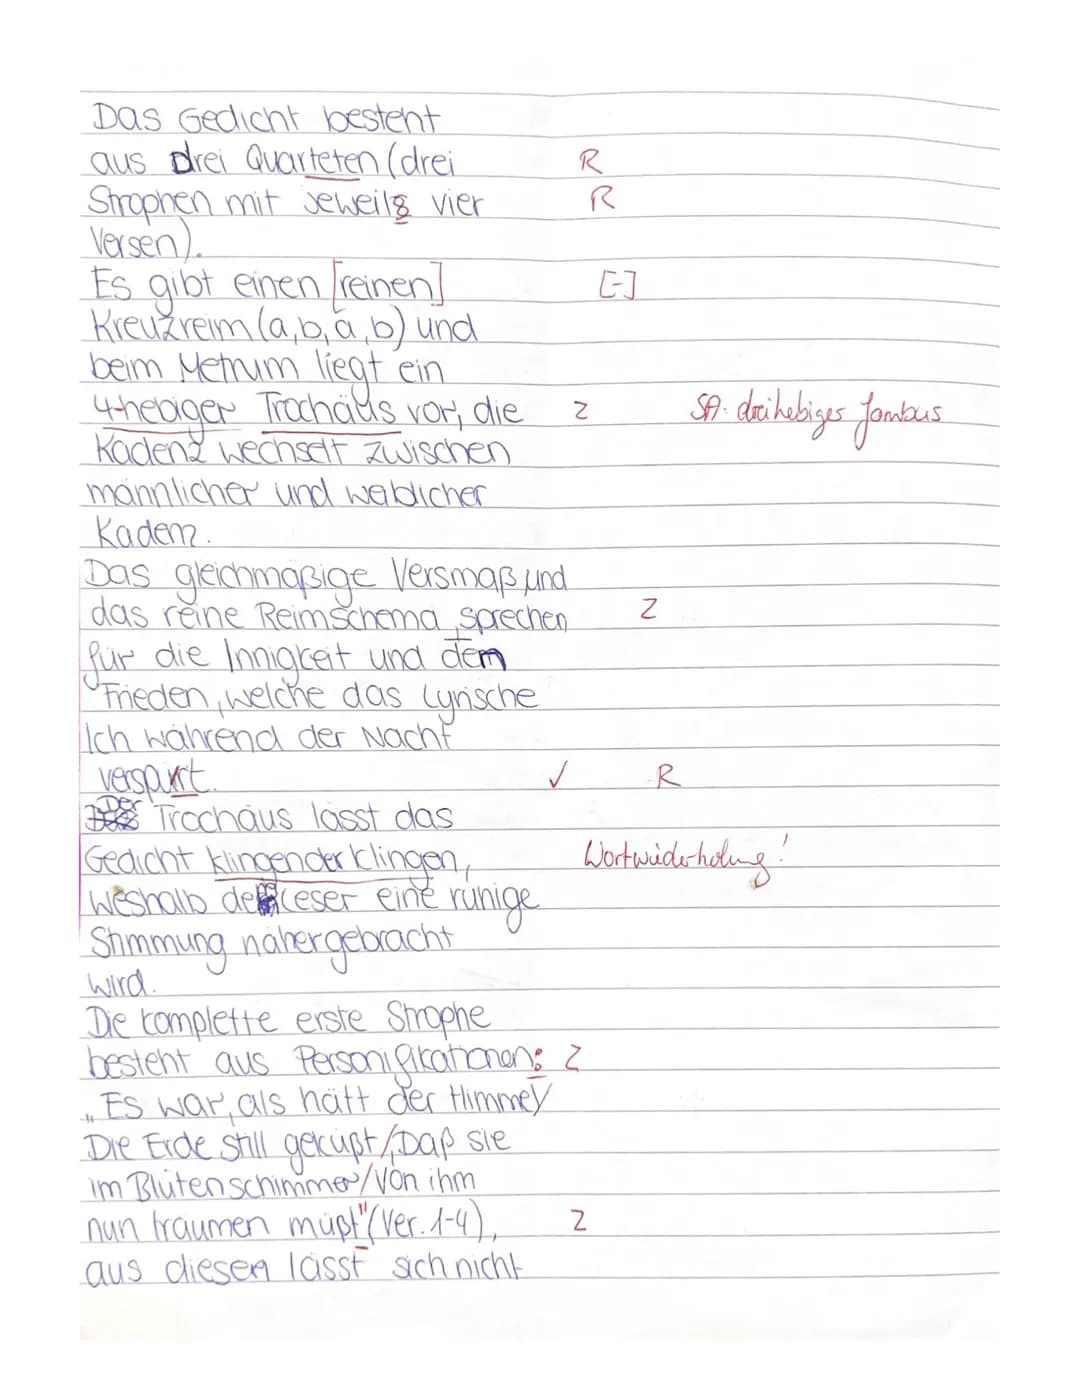 Das Gedicht besteht
aus drei Quarteten (drei R
Strophen mit jeweils vier R
Versen).
Es gibt einen [reinen] [-]
Kreuzreim (a,b,a,b) und
beim Metrum liegt ein
4-hebiger Trochäus vor, die Z SA: dreihebiges Jambus
Kadenz wechselt zwischen
männlicher und weiblicher
Kadenz.
Das gleichmäßige Versmaß und
das reine Reimschema sprechen Z
für die Innigkeit und dem
Frieden, welche das Lyrische
Ich während der Nacht
verspürt. ✓ R
Der Trochäus lässt das
Gedicht klingender klingen, Wortwiederholung!
weshalb dem Leser eine ruhige
Stimmung näher gebracht
wird.
Die komplette erste Strophe
besteht aus Personifikationen: Z
„Es war, als hätt der Himmel/
Die Erde still geküßt/, Daß sie
im Blütenschimmer/Von ihm
nun träumen müßt" (Ver. 1-4), Z
aus diesen lässt sich nicht